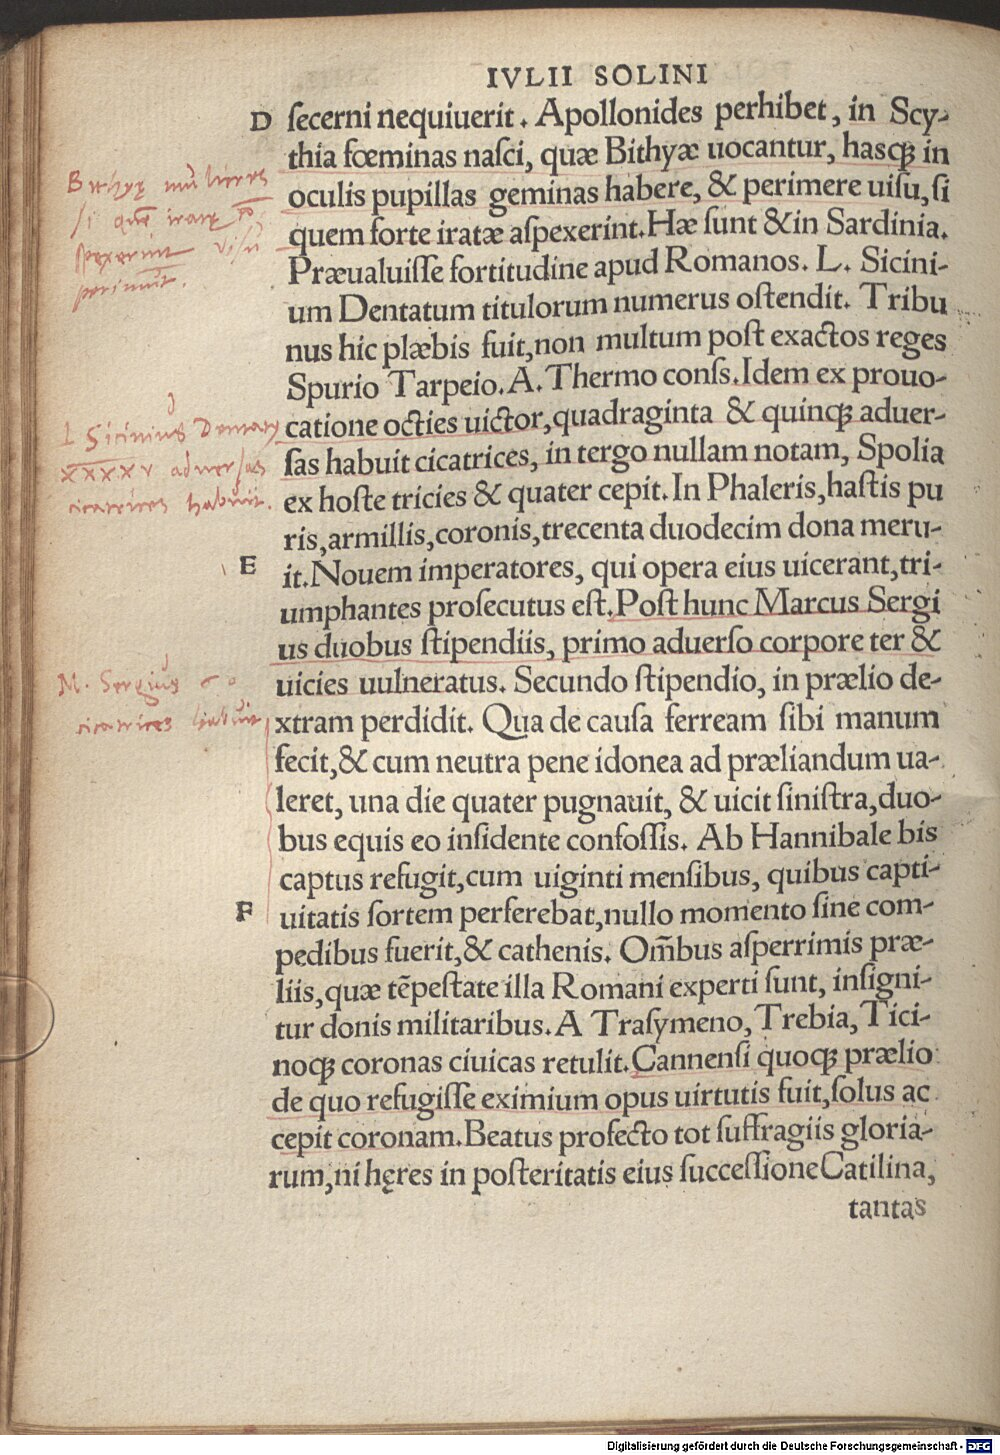 IVLII SOLINI
D ſecerni nequiuerit. Apollonides perhibet, in Scy-
thia fœminas naſci, quæ Bithyæ uocantur, haſqꝫ in
oculis pupillas geminas habere, & perimere uiſu, ſi
quem forte iratæ aſpexerint. Hæ ſunt & in Sardinia.
Præualuiſſe fortitudine apud Romanos. L. Sicini-
um Dentatum titulorum numerus oſtendit. Tribu
nus hic plæbis fuit, non multum poſt exactos reges
Spurio Tarpeio. A. Thermo conſs. Idem ex prouo-
catione octies uictor, quadraginta & quinqꝫ aduer-
ſas habuit cicatrices, in tergo nullam notam, Spolia
ex hoſte tricies & quater cepit. In Phaleris, haſtis pu
ris, armillis, coronis, trecenta duodecim dona meru-
E it. Nouem imperatores, qui opera eius uicerant, tri-
umphantes proſecutus eſt. Poſt hunc Marcus Sergi
us duobus ſtipendiis, primo aduerſo corpore ter &
uicies uulneratus. Secundo ſtipendio, in prælio de-
xtram perdidit. Qua de cauſa ferream ſibi manum
fecit, & cum neutra pene idonea ad præliandum ua-
leret, una die quater pugnauit, & uicit ſiniſtra, duo-
bus equis eo inſidente confoſſis. Ab Hannibale bis
captus refugit, cum uiginti menſibus, quibus capti-
F uitatis ſortem perferebat, nullo momento ſine com-
pedibus fuerit, & cathenis. Om̃bus aſperrimis præ-
liis, quæ tẽpeſtate illa Romani experti ſunt, inſigni-
tur donis militaribus. A Traſymeno, Trebia, Tici-
noqꝫ coronas ciuicas retulit. Cannenſi quoqꝫ prælio
de quo refugiſſe eximium opus uirtutis fuit, ſolus ac
cepit coronam. Beatus profecto tot ſuffragiis gloria-
rum, ni hęres in poſteritatis eius ſucceſſione Catilina,
tantas
Bithyę mulieres
ſi quẽ iratę
ſpexerint viſu
perimũt.
L Sicinius Dentatꝯ
xxxxv aduerſas
cicatrices habuit.
M. Sergius
cicatrices habuit
Digitalisierung gefördert durch die Deutsche Forschungsgemeinschaft - DFG